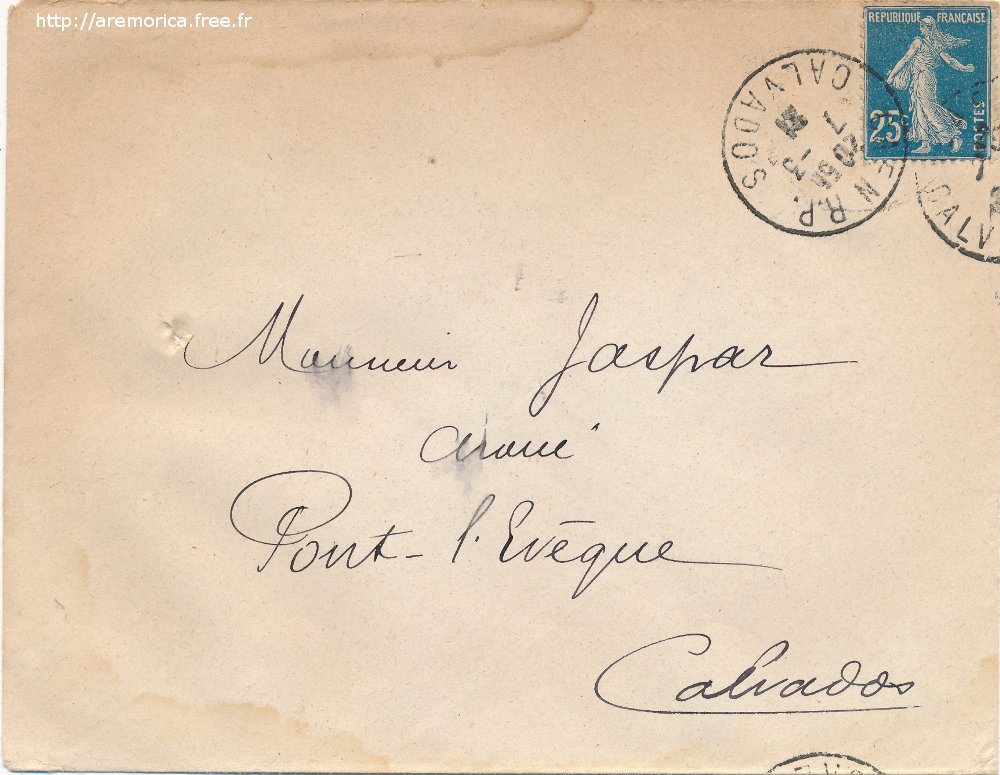 http://aremorica.free.fr
REPUBLIQUE FRANÇAISE
25c
POSTES
CAEN R.P.
CALVADOS
CALV
Monsieur Jaspar
avoué
Pont-l'Evêque
Calvados